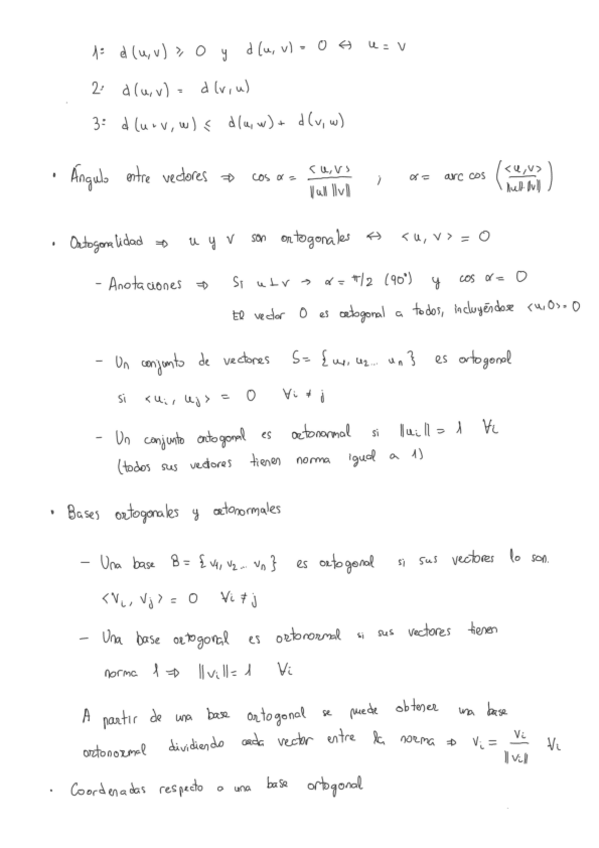 1: d(u,v) ≥ 0 y d(u,v) = 0 ⇔ u = v
2: d(u,v) = d(v,u)
3: d(u·v, w) ≤ d(u,w) + d(v,w)
· Ángulo entre vectores ⇒ cos α = <u,v> / ||u|| ||v|| ; α = arc cos (<u,v> / ||u|| ||v||)
· Ortogonalidad ⇒ u y v son ortogonales ↔ <u, v> = 0
- Anotaciones ⇒ Si u ⊥ v → α = π/2 (90°) y cos α = 0
El vector 0 es ortogonal a todos, incluyéndose <u,0> = 0
- Un conjunto de vectores S = {u₁, u₂... uₙ} es ortogonal
si <uᵢ, uⱼ> = 0 ∀i ≠ j
- Un conjunto ortogonal es ortonormal si ||uᵢ|| = 1 ∀i
(todos sus vectores tienen norma igual a 1)
· Bases ortogonales y ortonormales
- Una base B = {v₁, v₂... vₙ} es ortogonal si sus vectores lo son.
<vᵢ, vⱼ> = 0 ∀i ≠ j
- Una base ortogonal es ortonormal si sus vectores tienen
norma 1 ⇒ ||vᵢ|| = 1 ∀i
A partir de una base ortogonal se puede obtener una base
ortonormal dividiendo cada vector entre la norma ⇒ vᵢ = vᵢ / ||vᵢ|| ∀i
· Coordenadas respecto a una base ortogonal